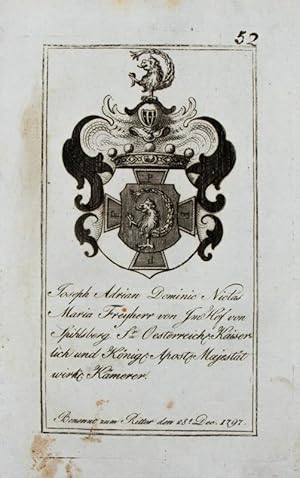 52
F
F F
F
Joseph Adrian Dominic Niclas
Maria Freyherr von Im Hof von
Spihlsberg Sr Oesterreich Kaiser
lich und König Apost Majestät
wirkl Kämerer.
Benennt zum Ritter den 28t Dec. 1797.